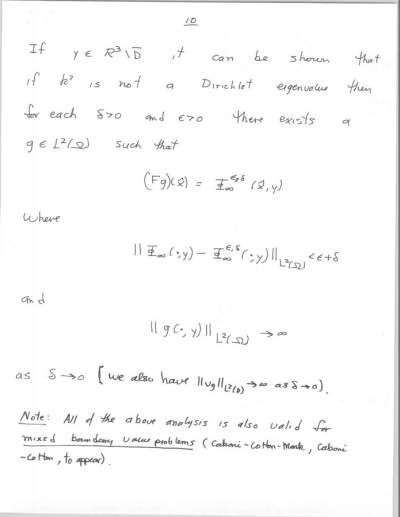 10
If y ∈ R³\D̄ it can be shown that
if k² is not a Dirichlet eigenvalue then
for each δ>0 and ε>0 there exists a
g ∈ L²(Ω) such that
(Fg)(x̂) = Φ∞^{ε,δ}(x̂,y)
where
||Φ∞(·,y) − Φ∞^{ε,δ}(·,y)||_{L²(Ω)} < ε+δ
and
||g(·,y)||_{L²(Ω)} → ∞
as δ→0 (we also have ||v_g||_{L²(D)} → ∞ as δ→0).
Note: All of the above analysis is also valid for
mixed boundary value problems (Cakoni-Colton-Monk, Cakoni
-Colton, to appear).